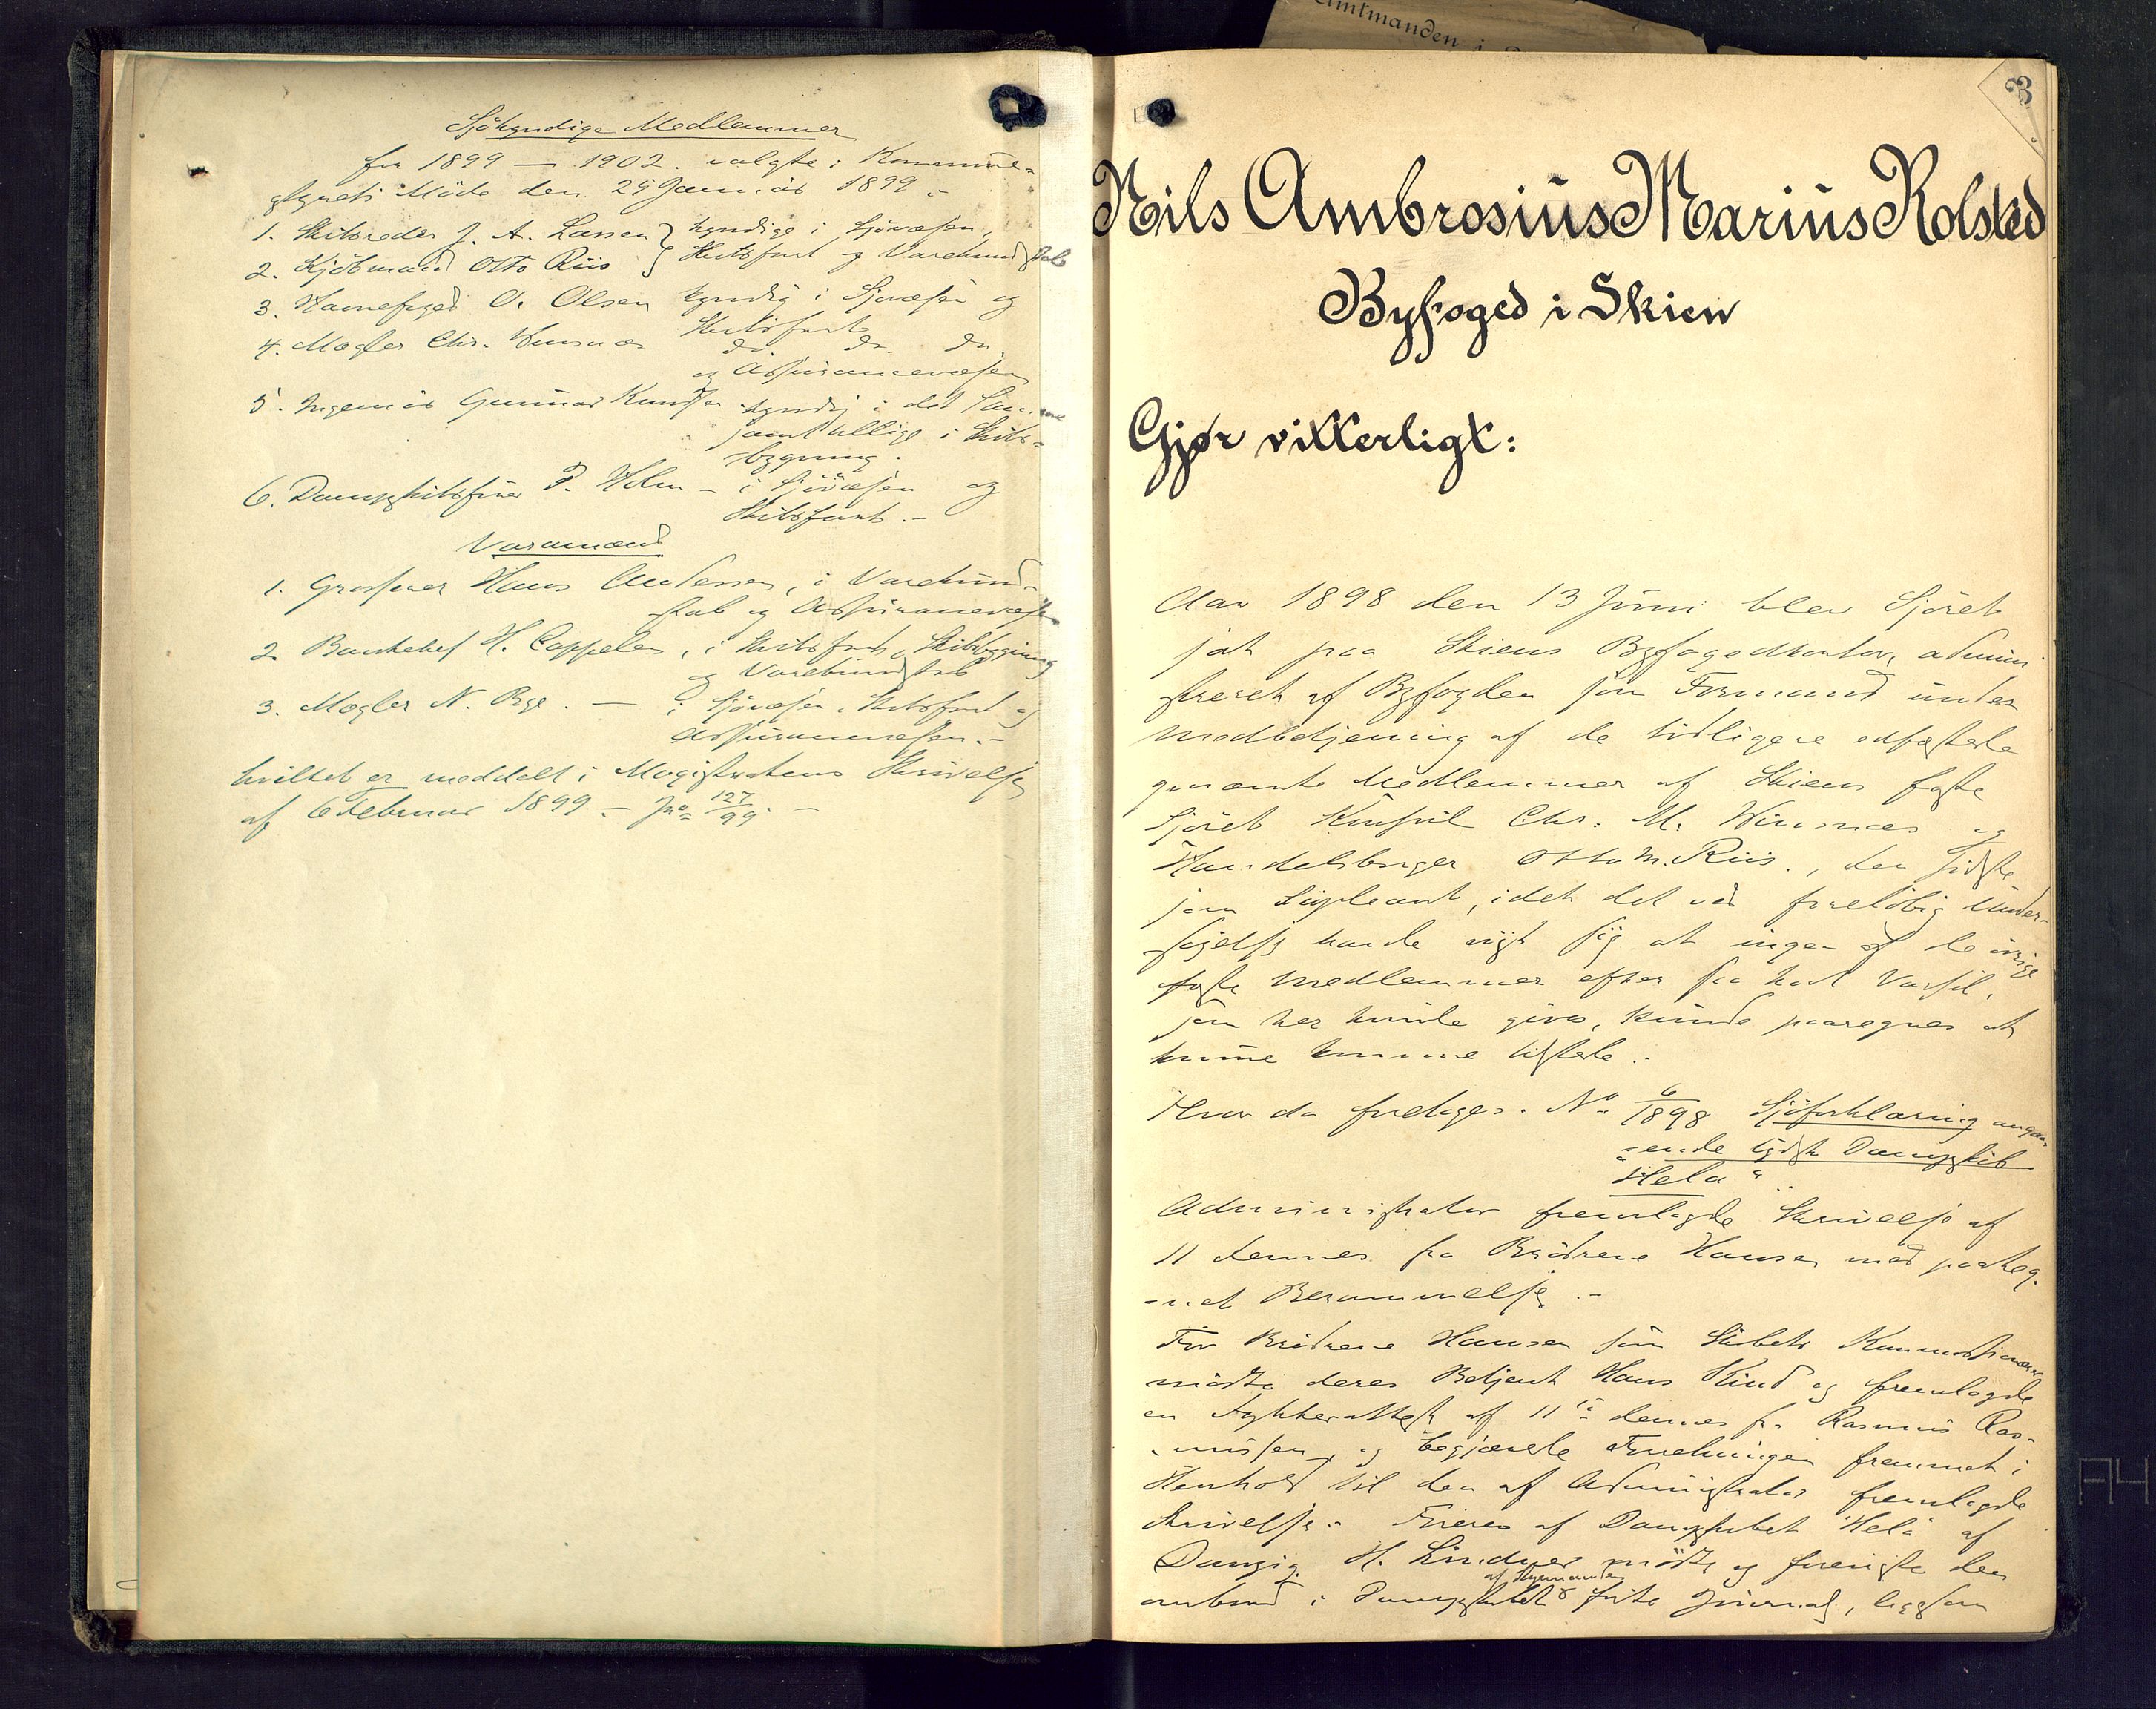 Sjökyndige Medlemmer
fra 1899 – 1902. valgte i Kommune-
styrets Möde den 25 Januar 1899.
1. Skibsreder J. A. Larsen } kyndige i Sjövæsen,
2. Kjöbmand Otto Riis } Skibsfart og Varekundskab
3. Havnefoged O. Olsen kyndig i Sjövæsen og
Skibsfart
4. Mægler Chr. Winsnæs do. do. do.
og Assurancevæsen
5. Ingeniör Gunnar Knudsen kyndig i det Samme
samt tillige i Skibs-
bygning.
6. Dampskibsförer P. Holm – i Sjövæsen og
Skibsfart. –
Varamænd
1. Grosserer Hans Andersen, i Varekund-
skab og Assurancevæsen
2. Bankchef H. Cappelen, i Skibsfart, Skibbygning
og Varekundskab
3. Mægler N. Rye. — i Sjövæsen, Skibsfart og
Assurancevæsen. –
hvilket er meddelt i Magistratens Skrivelse
af 6 Februar 1899 – Jno 127/99. –
Amtmanden i
3
Nils Ambrosius Marius Kolsted
Byfoged i Skien
Gjør vitterligt:
Aar 1898 den 13 Juni blev Sjöret
sat paa Skiens Byfogedkontor, admini
streret af Byfogden som Formand under
Medbetjening af de tidligere edfæstede
nævnte Medlemmer af Skiens faste
Sjöret Konsul Chr. M. Winsnæs og
Handelsborger Otto M. Riis., den sidste
som Supleant, idet det ved foreløbig Under-
søgelse havde vist sig at ingen af de övrige
faste Medlemmer efter saa kort Varsel,
som her kunde gives, kunde paaregnes at
kunne komme tilstede.
Hvor da foretages. No 6/1898 Sjöforklaring angaa-
ende tydsk Dampskib
"Hela".
Administrator fremlagde Skrivelse af
11 dennes fra Brödrene Hansen med paateg-
net Berammelse. –
For Brödrene Hansen som Skibets Kommissionærer
mödte deres Betjent Hans Kind og fremlagde
en Lykkerattest af 11te dennes fra Rasmus Ras-
mussen, og begjærede Forretningen fremmet i
Henhold til den af Administrator fremlagde
Skrivelse. Föreren af Dampskibet "Hela" af
Danzig. H. Lindner mödte og foreviste den
af Styrmanden
ombord i Dampskibet förte Journal, ligesom